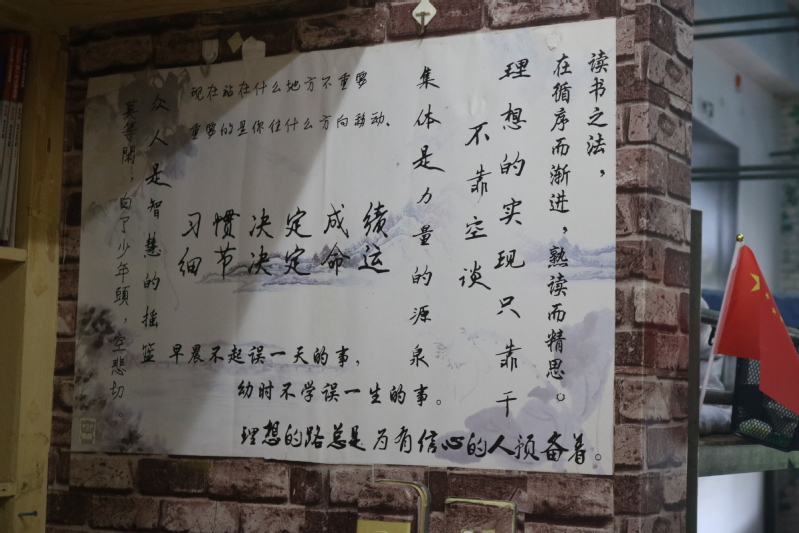 读书之法，
在循序而渐进，熟读而精思。
理想的实现只靠干
不靠空谈
集体是力量的源泉
现在站在什么地方不重要
重要的是你往什么方向移动、
习惯决定成绩
细节决定命运
众人是智慧的摇篮
莫等閑，白了少年頭，空悲切。
早晨不起误一天的事，
幼时不学误一生的事。
理想的路总是为有信心的人预备着。